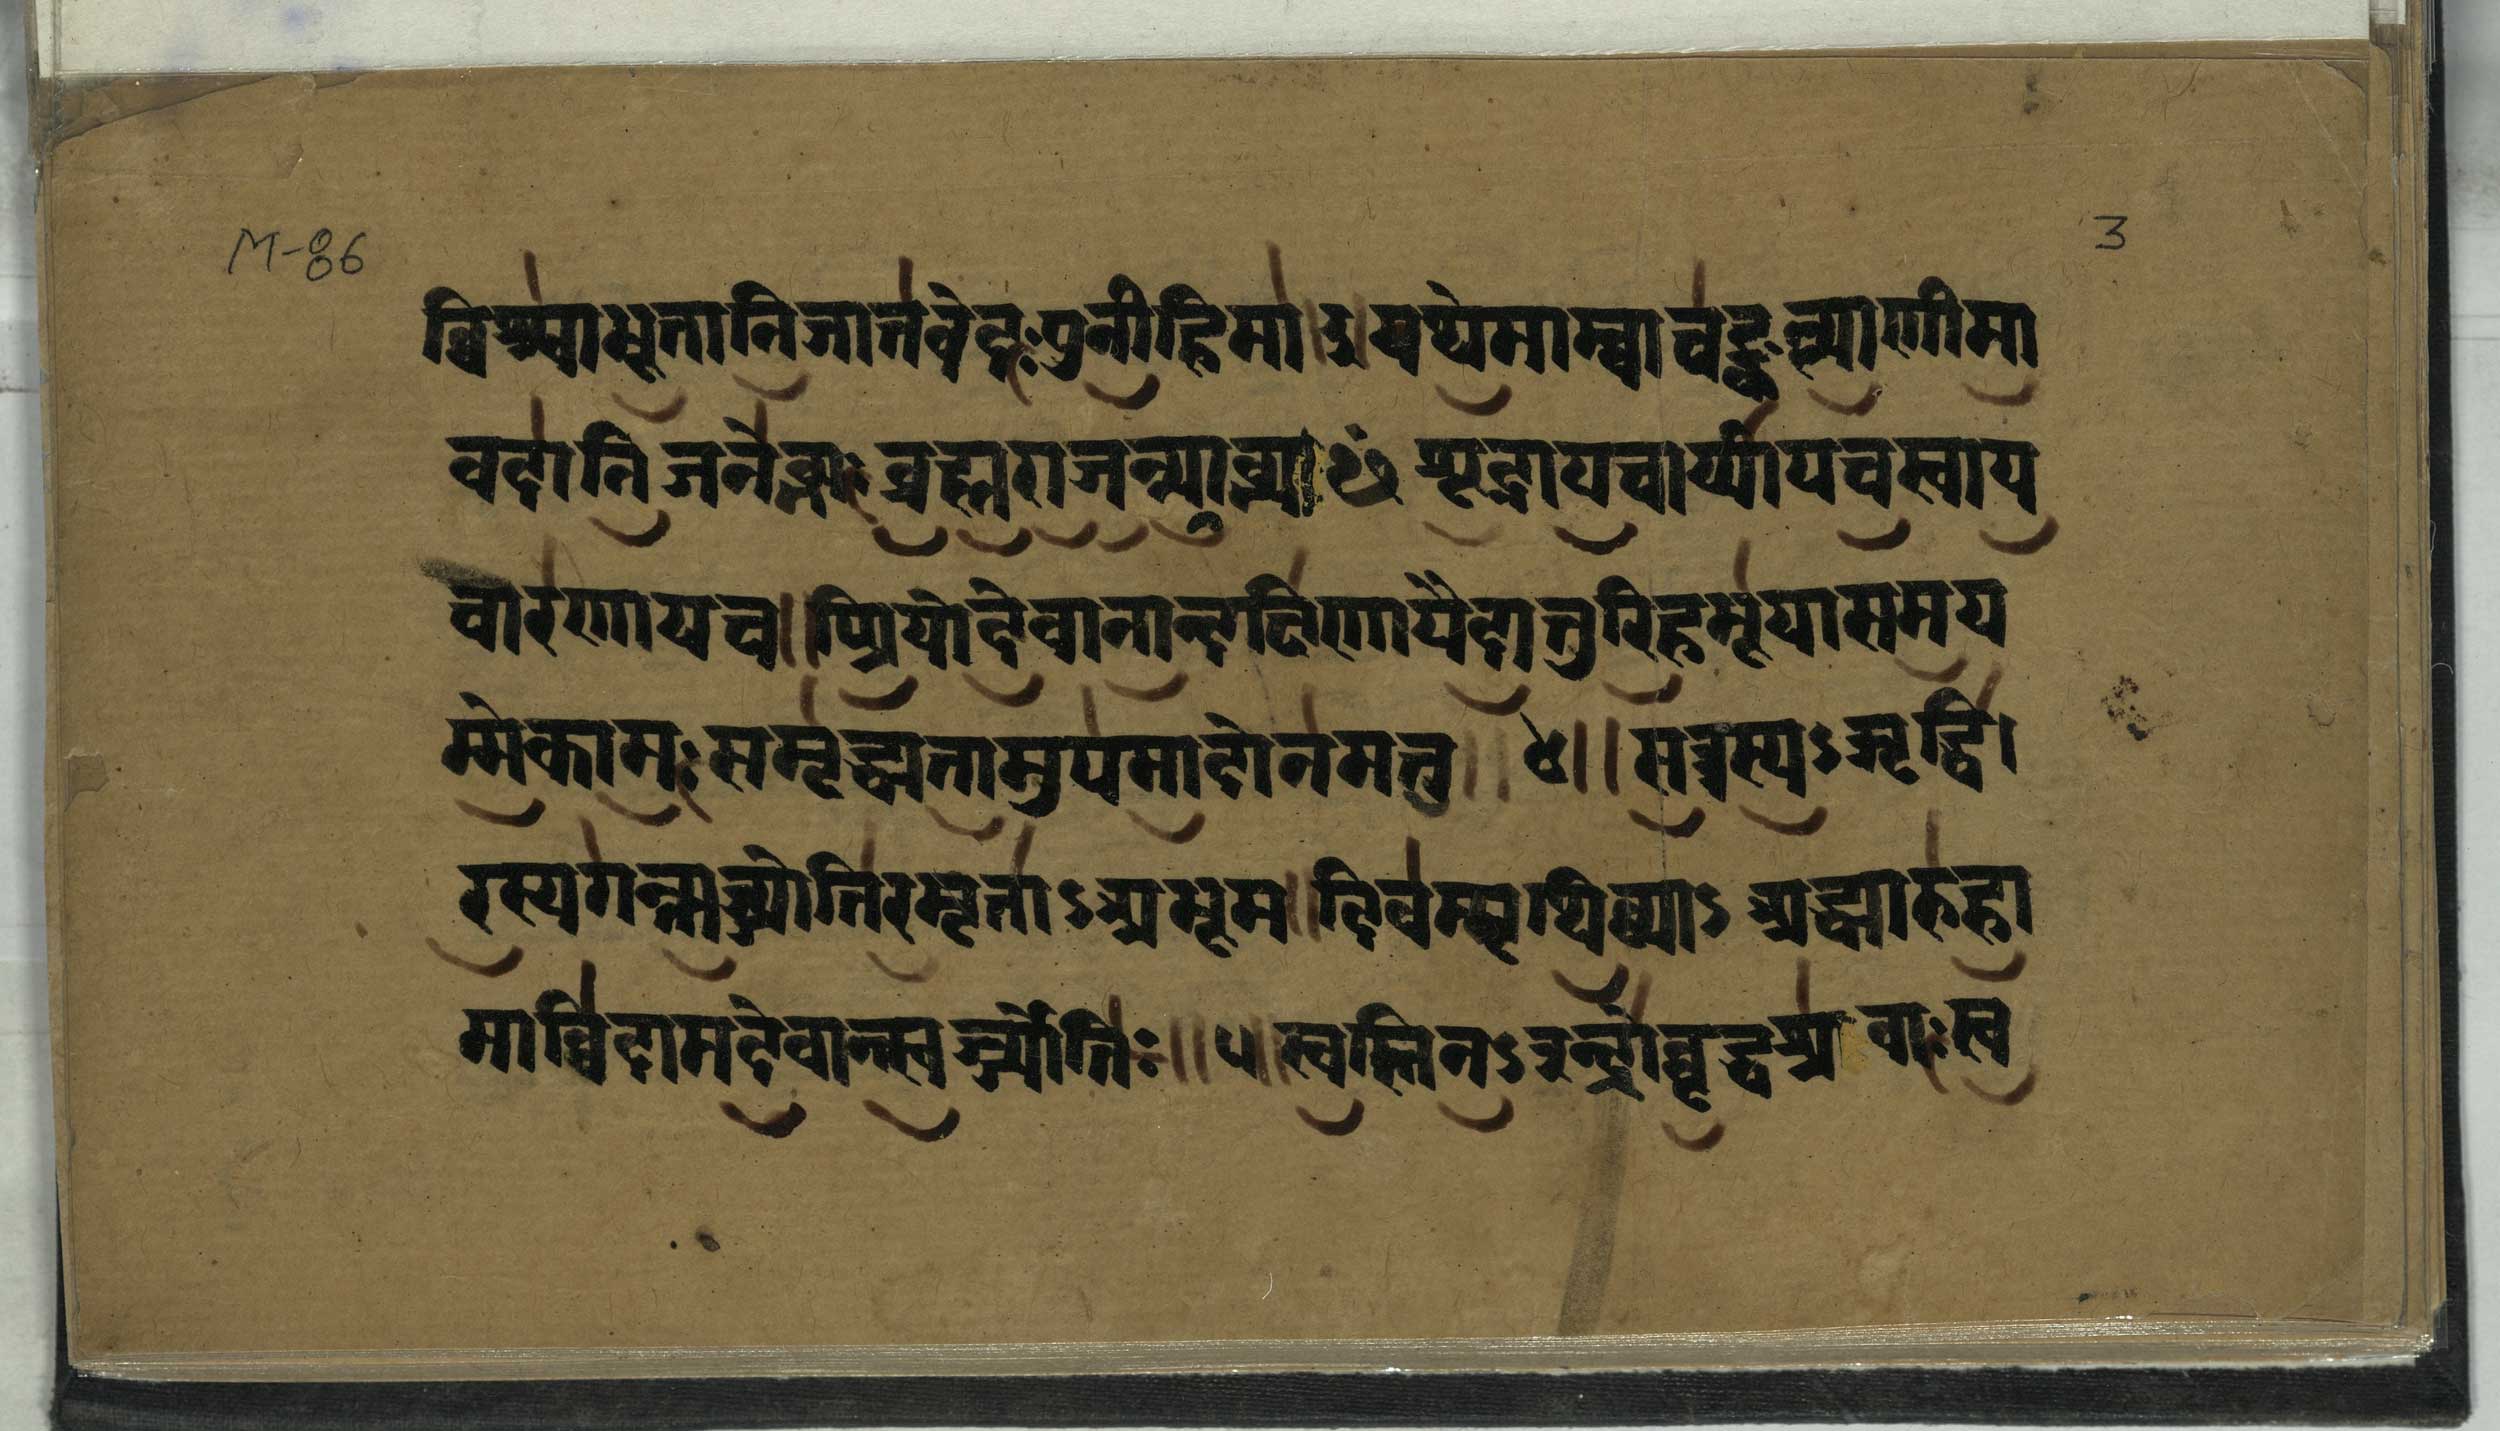 M-86
3
विश्वाभूतानिजातवेदः पुनीहिमा॥३॥यथेमाम्वाचङ्कल्याणीमा
वदानिजनेब्भ्यः ब्रह्मराजन्याब्भ्या ᳪ शूद्रायचार्य्यायचस्वाय
चारणायच॥प्प्रियोदेवानान्दक्षिणायैदातुरिहभूयासमय
म्मेकामः समृद्ध्यतामुपमादोनमतु॥४॥सत्रस्यऽऋद्धि।
रस्यगन्मज्ज्योतिरमृताऽअभूम॥दिवम्पृथिव्याऽअद्ध्यारुहा
माविदामदेवान्त्स्वर्ज्ज्योतिः॥५॥स्वस्तिनऽइन्द्रोवृद्धश्रवाः स्व